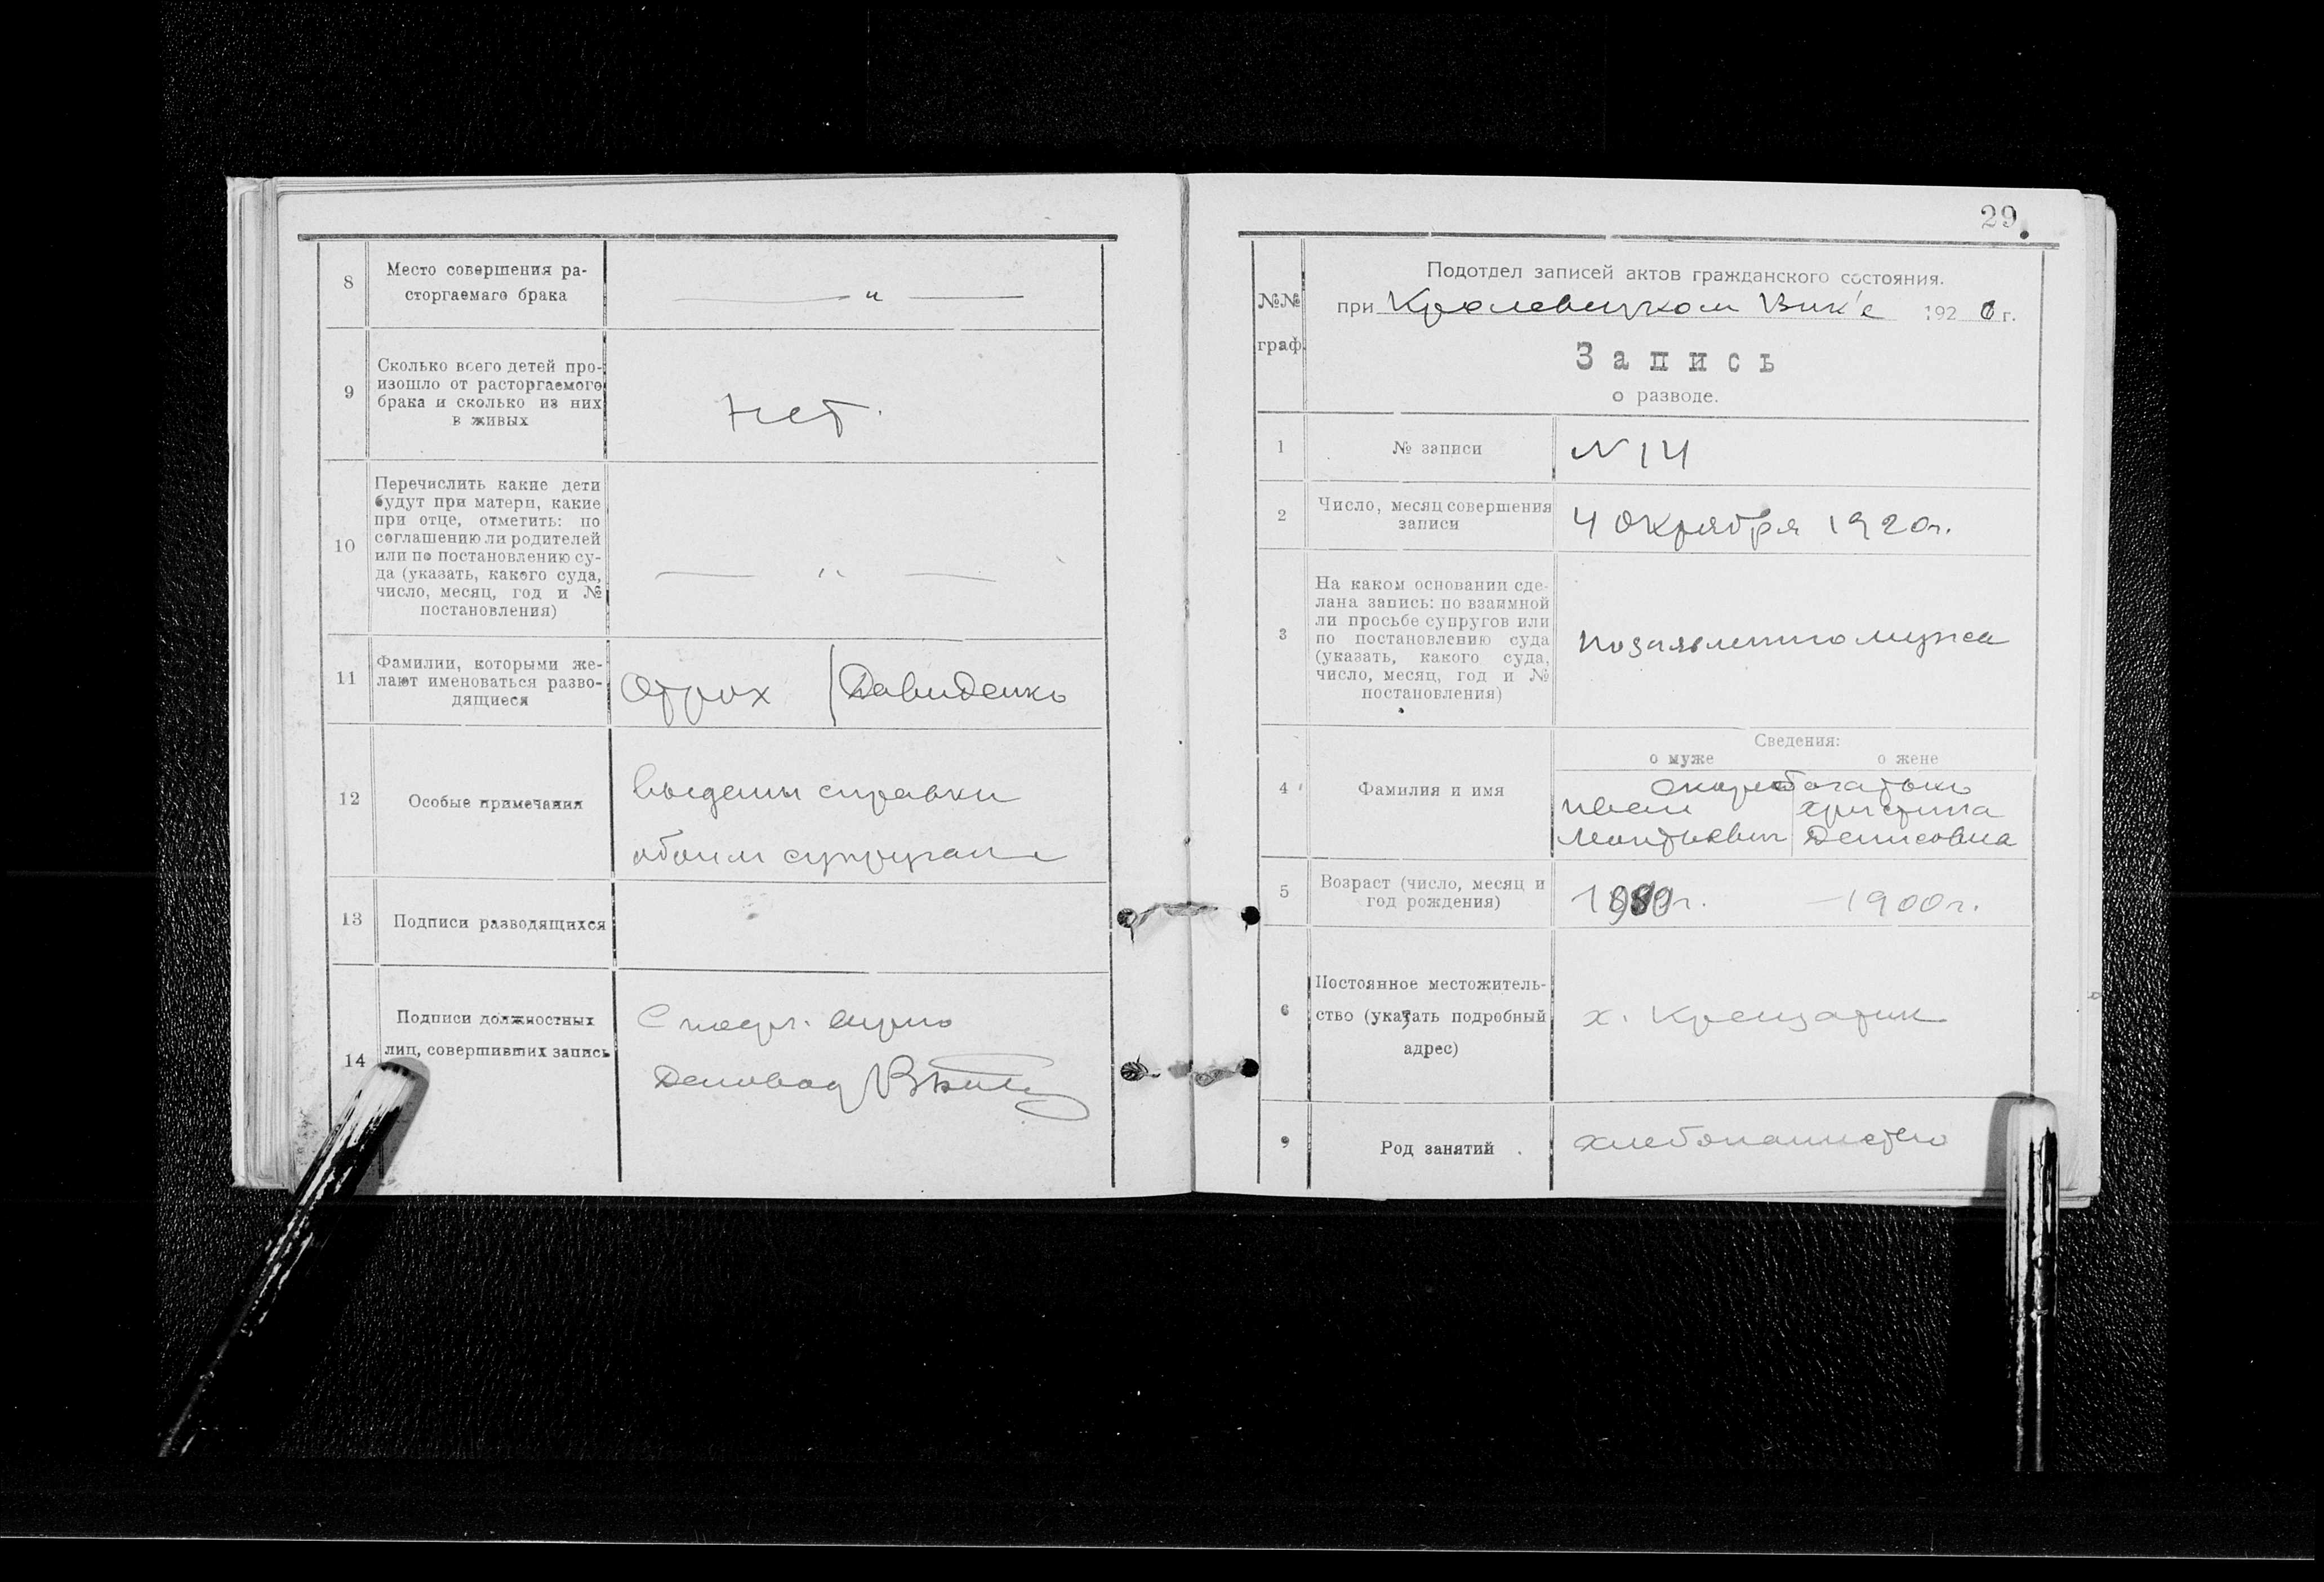 8
Место совершения ра-
сторгаемаго брака
— „ —
9
Сколько всего детей про-
изошло от расторгаемого
брака и сколько из них
в живых
Нет.
10
Перечислить какие дети
будут при матери, какие
при отце, отметить: по
соглашению ли родителей
или по постановлению су-
да (указать, какого суда,
число, месяц, год и №
постановления)
— „ —
11
Фамилии, которыми же-
лают именоваться разво-
дящиеся
Отрох | Давиденко
12
Особые примечания
Выданы справки
обоим супругам
13
Подписи разводящихся
14
Подписи должностных
лиц, совершивших запись
Деловод
29.
№№
граф
Подотдел записей актов гражданского состояния.
при Кролевецком Вик'е 1920 г.
Запись
о разводе.
1
№ записи
N 14
2
Число, месяц совершения
записи
4 Октября 1920 г.
3
На каком основании сде-
лана запись: по взаимной
ли просьбе супругов или
по постановлению суда
(указать, какого суда,
число, месяц, год и №
постановления)
по заявлению мужа
4
Фамилия и имя
Сведения:
о муже о жене
Иван Христина
Денисовна
5
Возраст (число, месяц и
год рождения)
1900 г.
6
Постоянное местожитель-
ство (указать подробный
адрес)
х. Крещатик
9
Род занятий
хлебопашество